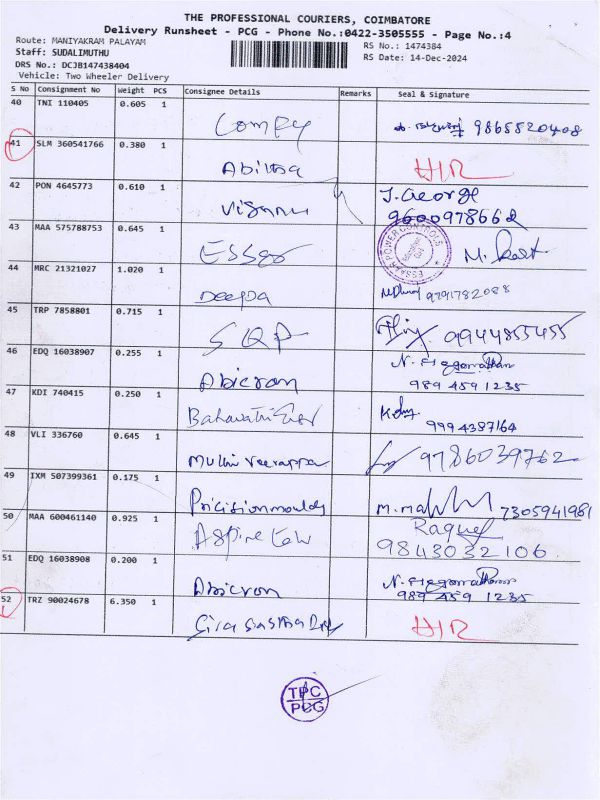 THE PROFESSIONAL COURIERS, COIMBATORE
Delivery Runsheet - PCG - Phone No.:0422-3505555 - Page No.:4
Route: MANIYAKRAM PALAYAM
RS No.: 1474384
Staff: SUDALIMUTHU
RS Date: 14-Dec-2024
DRS No.: DCJB147438404
Vehicle: Two Wheeler Delivery
S No Consignment No Weight PCS Consignee Details Remarks Seal & Signature
40 TNI 110405 0.605 1
9865520408
41 SLM 360541766 0.380 1
Abitha HIR
42 PON 4645773 0.610 1 J. George
Vishnu
43 MAA 575788753 0.645 1
ESSAR POWER CONTROLS
44 MRC 21321027 1.020 1
Deepa 9791782088
45 TRP 7858801 0.715 1
SQP 9944855455
46 EDQ 16038907 0.255 1
Abicron 989 459 1235
47 KDI 740415 0.250 1
9994387164
48 VLI 336760 0.645 1
Muthu veerappa 9786039762
49 IXM 507399361 0.175 1
Pricitionmoulds 7305941981
50 MAA 600461140 0.925 1 Raquel
Aspire 9843032106
51 EDQ 16038908 0.200 1
Abicron 989 459 1235
52 TRZ 90024678 6.350 1
HIR
TPC
PCG